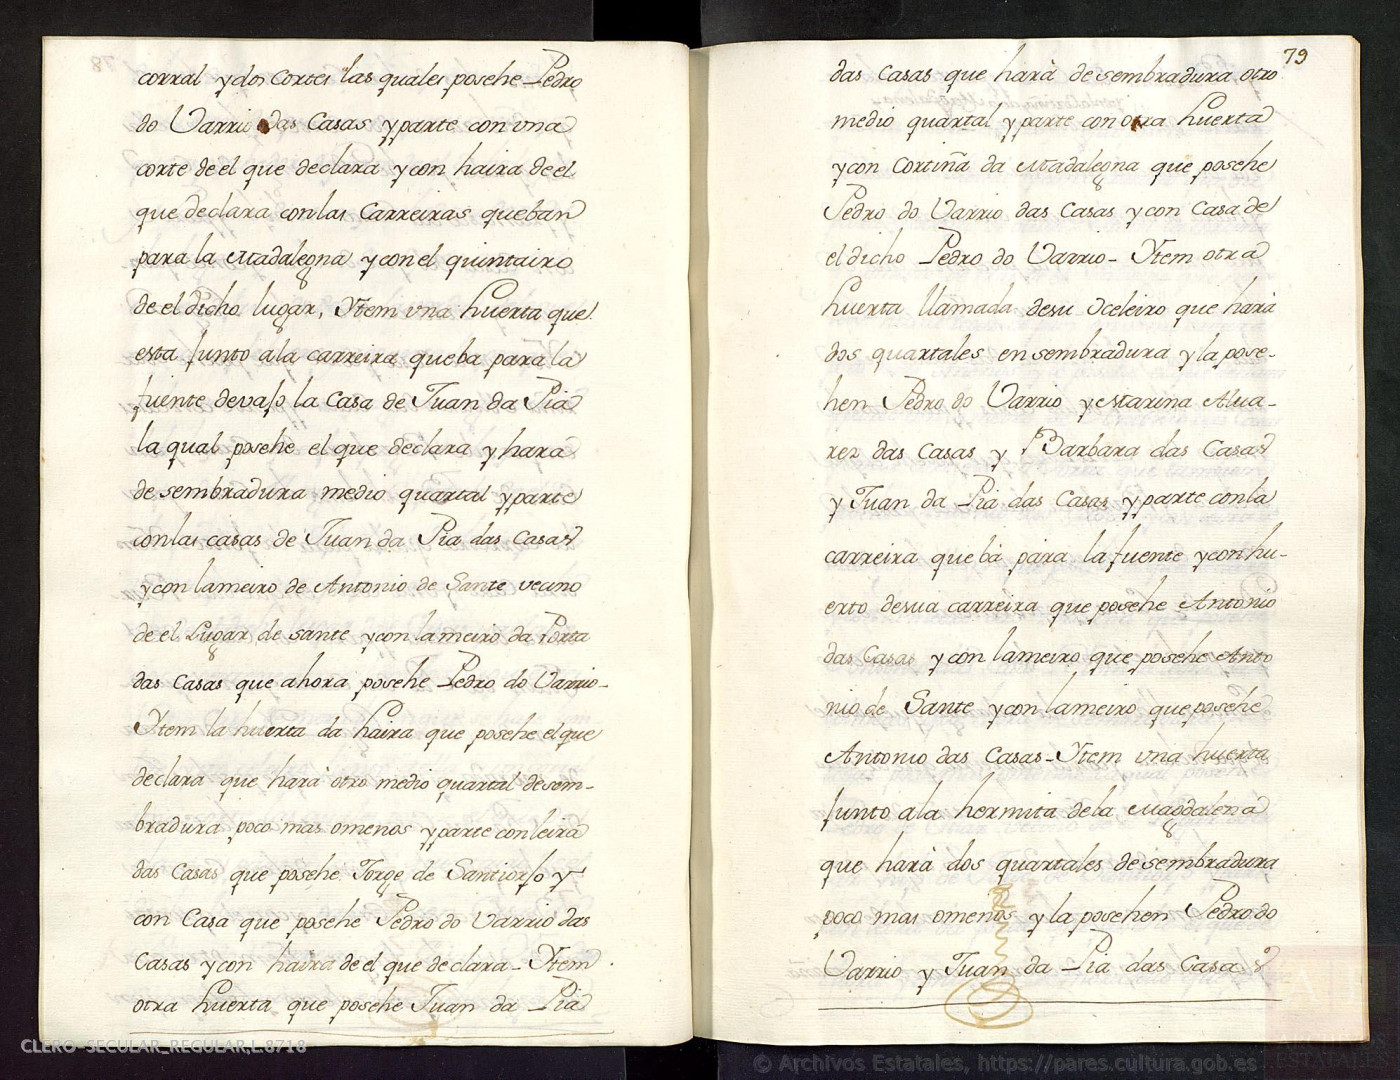 corral y dos Cortes las quales posehe Pedro
do Varrio das Casas y parte con vna
corte de el que declara y con haira de el
que declara con las Carreiras que ban
para la Madalegna y con el quintairo
de el dicho lugar, Ytem vna huerta que
esta Junto ala carreira que ba para la
fuente devajo la Casa de Juan da Pia
la qual posehe el que declara y hara
de sembradura medio quartal y parte
con las casas de Juan da Pia das Casas
y con lameiro de Antonio de Sante vecino
de el Lugar de sante y con lameiro da Porta
das Casas que ahora posehe Pedro do Varrio-
Ytem la huerta da haira que posehe el que
declara que harà otro medio quartal de sem-
bradura poco mas omenos y parte con leira
das Casas que posehe Jorge de Santiorjo y
con Casa que posehe Pedro do Varrio das
Casas y con haira de el que declara- Ytem
otra huerta que posehe Juan da Pia
79
das Casas que harà de sembradura otro
medio quartal y parte con otra huerta
y con Cortiña da Madalegna que posehe
Pedro do Varrio das Casas y con Casa de
el dicho Pedro do Varrio- Ytem otra
huerta llamada desu Oceleiro que harà
dos quartales en sembradura y la pose-
hen Pedro do Varrio y Marina Alua-
rez das Casas y Barbara das Casas
y Juan da Pià das Casas y parte con la
carreira que bà para la fuente y con hu-
erto desua carreira que posehe Antonio
das Casas y con lameiro que posehe Anto
nio de Sante y con lameiro que posehe
Antonio das Casas- Ytem vna huerta
Junto ala hermita de la Magdalena
que harà dos quartales de sembradura
poco mas omenos y la posehen Pedro do
Varrio y Juan da Pia das Casas
CLERO-SECULAR_REGULAR,L.8718
© Archivos Estatales, https://pares.cultura.gob.es